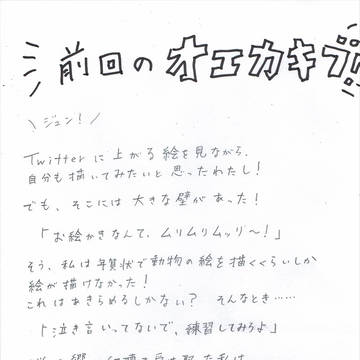 前回のオエカキラ
ジュン！
Twitterに上がる絵を見ながら、
自分も描いてみたいと思ったわたし！
でも、そこには大きな壁があった！
「お絵かきなんて、ムリムリムッリ〜！」
そう、私は年賀状で動物の絵を描くくらいしか
絵が描けなかった！
これはあきらめるしかない？ そんなとき……
「泣き言いってないで、練習してみろよ」